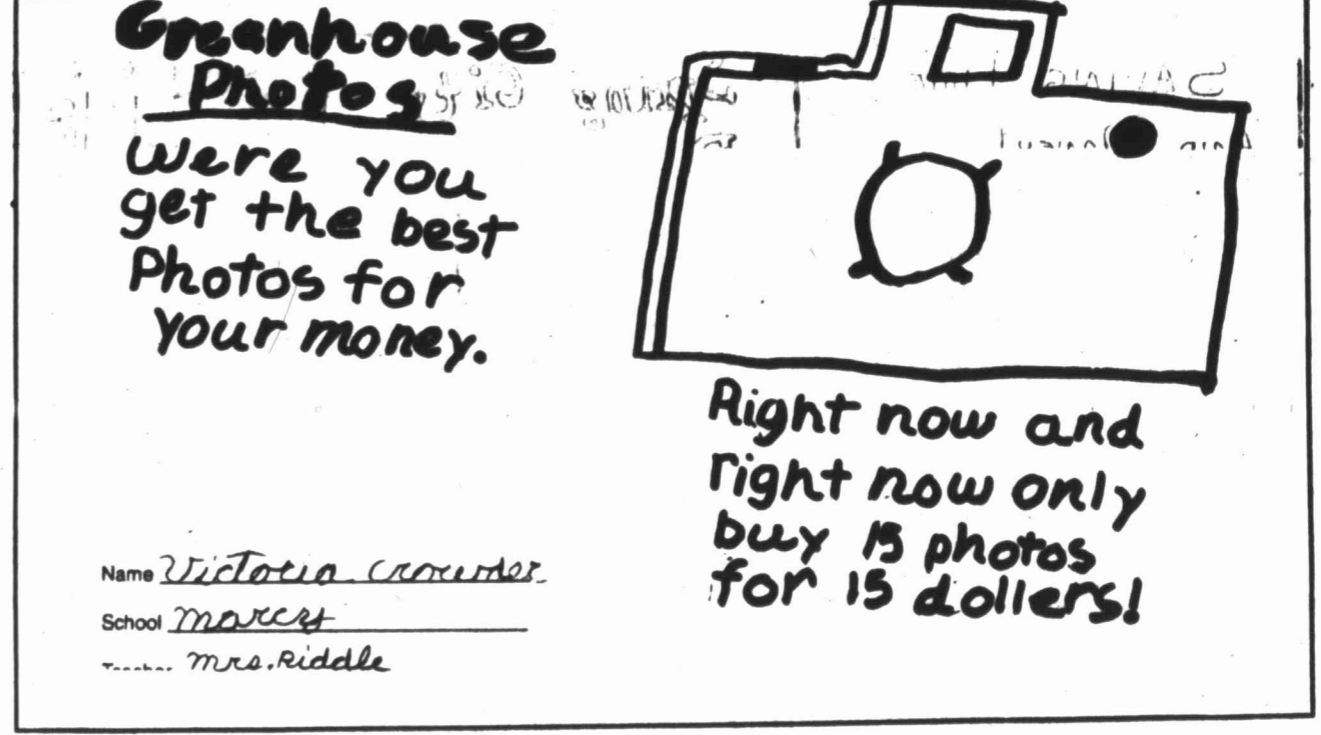 Greenhouse
Photos
Were you
get the best
Photos for
your money.
Right now and
right now only
buy 15 photos
for 15 dollers!
Name Victoria Crowder
School Marcy
Teacher Mrs. Riddle